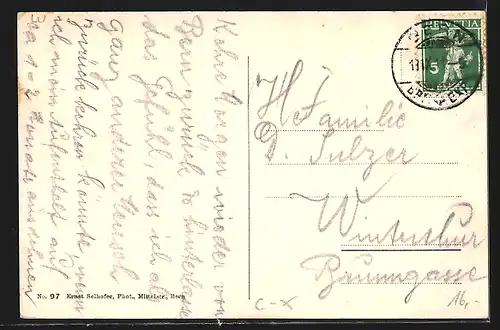 Kehre Morgen wieder von
Bern zurück so hinterlasse
das Gefühl, das ich als
ganz anderer Mensch
zurück kehren könnte, wenn
ich mein Aufenthalt auf
1-2 Monate ausdehnen
HELVETIA
5
Familie
D. Sulzer
Winterthur
Brunngasse
No. 97 Ernst Selhofer, Phot., Mittelstr., Bern
C-X
16,-